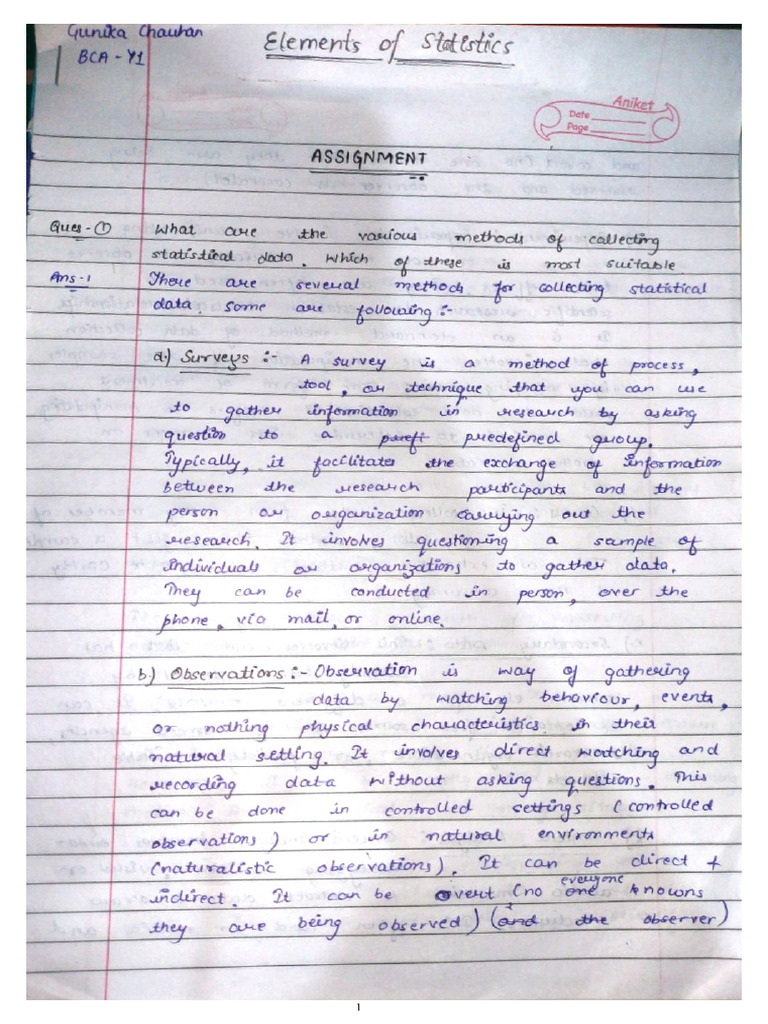 Gunika Chauhan
BCA - Y1
Elements of Statistics
Aniket
Date
Page
ASSIGNMENT
Ques-① What are the various methods of collecting
statistical data. Which of these is most suitable
Ans-1 There are several methods for collecting statistical
data. some are following :-
a.) Surveys :- A survey is a method of process,
tool, or technique that you can use
to gather information in research by asking
question to a predefined group.
Typically, it facilitates the exchange of information
between the research participants and the
person or organization carrying out the
research. It involves questioning a sample of
individuals or organizations to gather data.
They can be conducted in person, over the
phone, via mail, or online.
b.) Observations :- Observation is way of gathering
data by watching behaviour, events,
or nothing physical characteristics in their
natural setting. It involves direct watching and
recording data without asking questions. This
can be done in controlled settings (controlled
observations) or in natural environments
(naturalistic observations). It can be direct +
indirect. It can be overt (no one everyone knowns
they are being observed) (and the observer)
1